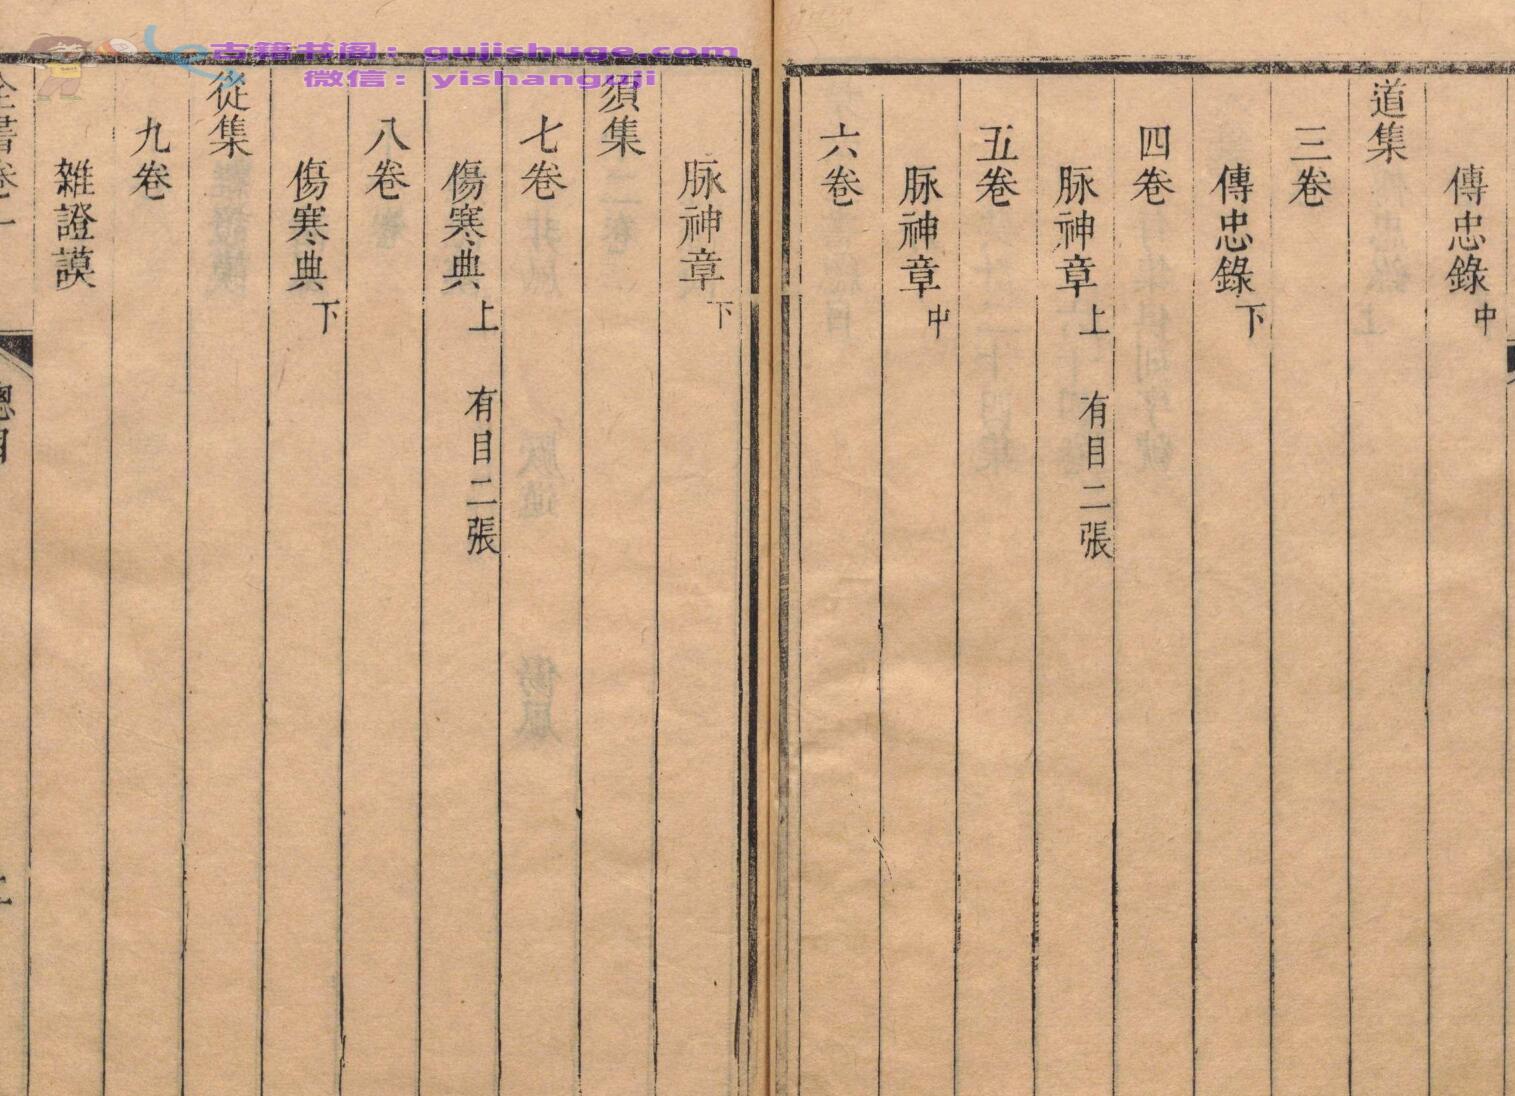 傳忠錄中
道集
三卷
傳忠錄下
四卷
脉神章上 有目二張
五卷
脉神章中
六卷
脉神章下
須集
七卷
傷寒典上 有目二張
八卷
傷寒典下
從集
九卷
雜證謨
全書卷一 總目
古籍书阁：gujishuge.com
微信：yishanguji